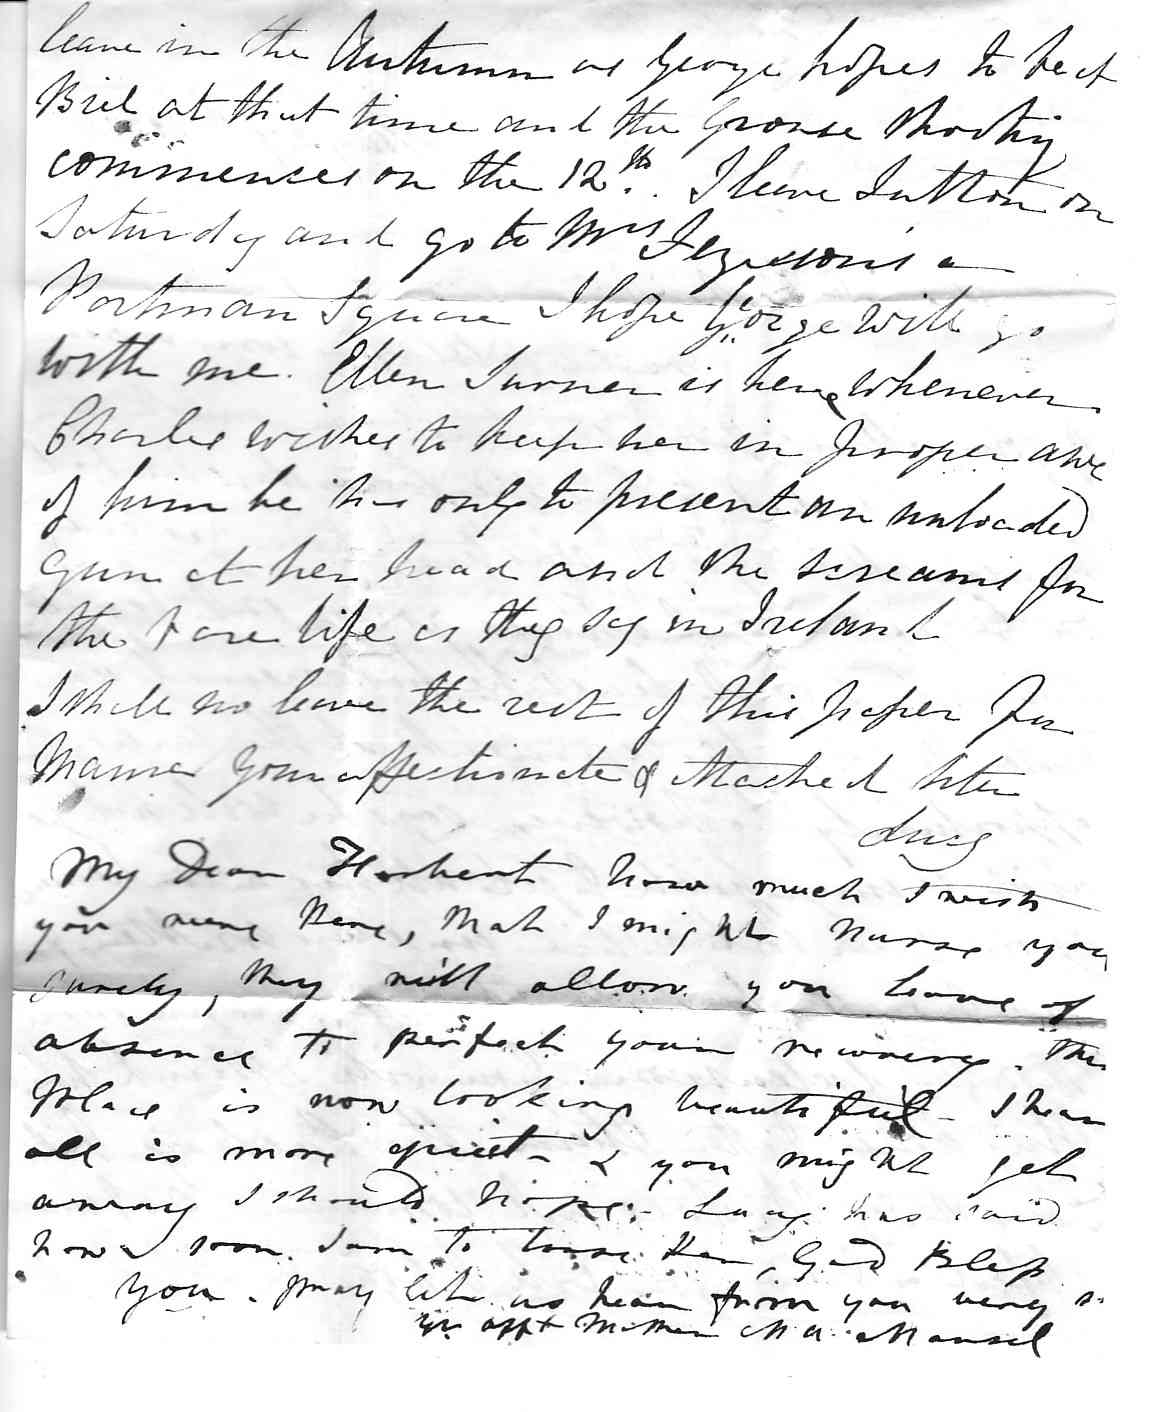 leave in the Autumn as George hopes to be at
Biel at that time and the Grouse Shooting
commences on the 12th. I leave Sutton on
Saturday and go to Mrs
Portman Square I hope George will go
with me. Ellen Turner is here, whenever
Charles wishes to keep her in proper awe
of him he has only to present an unloaded
Gun at her head and she screams for
the bare life as they say in Ireland
I shall no leave the rest of this paper for
Mama Your affectionate & attached Sister
Lucy
My Dear Herbert how much I wish
you were here, that I might nurse you
surely, they will allow you leave of
absence to perfect your recovery. This
Place is now looking beautiful - I hear
all is more quiet - & you might get
away I should hope. Lucy has said
how soon I am to loose her, God Bless
you. pray let us hear from you very
yr afft Mother M A Mansel